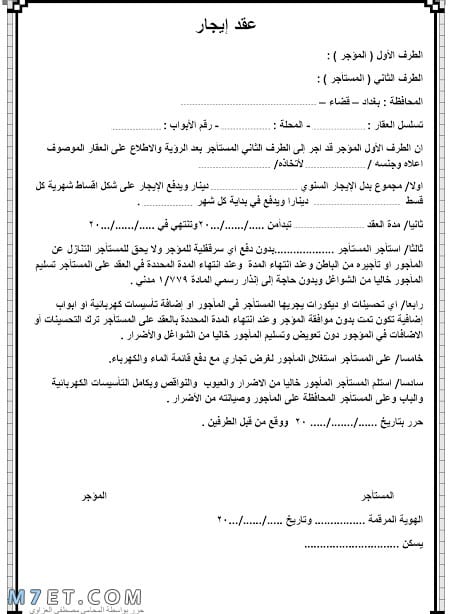 عقد إيجار
الطرف الأول ( المؤجر ) :
الطرف الثاني ( المستأجر ) :
المحافظة : بغداد – قضاء – ........................................
تسلسل العقار : .................. - المحلة : .................. - رقم الأبواب : ..................
ان الطرف الأول المؤجر قد اجر إلى الطرف الثاني المستأجر بعد الرؤية والاطلاع على العقار الموصوف
اعلاه وجنسه / .............................. لأتخاذه/ ..............................
اولا/ مجموع بدل الإيجار السنوي .............................. دينار ويدفع الإيجار على شكل اقساط شهرية كل
قسط .............................. دينارا ويدفع في بداية كل شهر .................... .
ثانيا/ مدة العقد .................... تبدأمن ...../....../...٢٠وتنتهي في ...../....../...٢٠
ثالثا/ استأجر المستأجر ....................بدون دفع أي سرقفلية للمؤجر ولا يحق للمستأجر التنازل عن
المأجور او تأجيره من الباطن وعند انتهاء المدة وعند انتهاء المدة المحددة في العقد على المستأجر تسليم
المأجور خاليا من الشواغل وبدون حاجة إلى إنذار رسمي المادة ١/٧٧٩ مدني .
رابعا/ أي تحسينات او ديكورات يجريها المستأجر في المأجور او إضافة تأسيسات كهربائية او ابواب
إضافية تكون تمت بدون موافقة المؤجر وعند انتهاء المدة المحددة بالعقد على المستأجر ترك التحسينات أو
الاضافات في المؤجور دون تعويض وتسليم المأجور خاليا من الشواغل والأضرار .
خامسا/ على المستأجر استغلال المأجور لغرض تجاري مع دفع قائمة الماء والكهرباء.
سادسا/ استلم المستأجر المأجور خاليا من الاضرار والعيوب والنواقص وبكامل التأسيسات الكهربائية
والباب وعلى المستأجر المحافظة على المأجور وصيانته من الأضرار .
حرر بتاريخ ....../......./..... ٢٠ ووقع من قبل الطرفين .
المستأجر المؤجر
الهوية المرقمة ................ وتاريخ ...../....../...٢٠
يسكن ..............................
M7ET.COM
حرر بواسطة المحامي مصطفى العزاوي